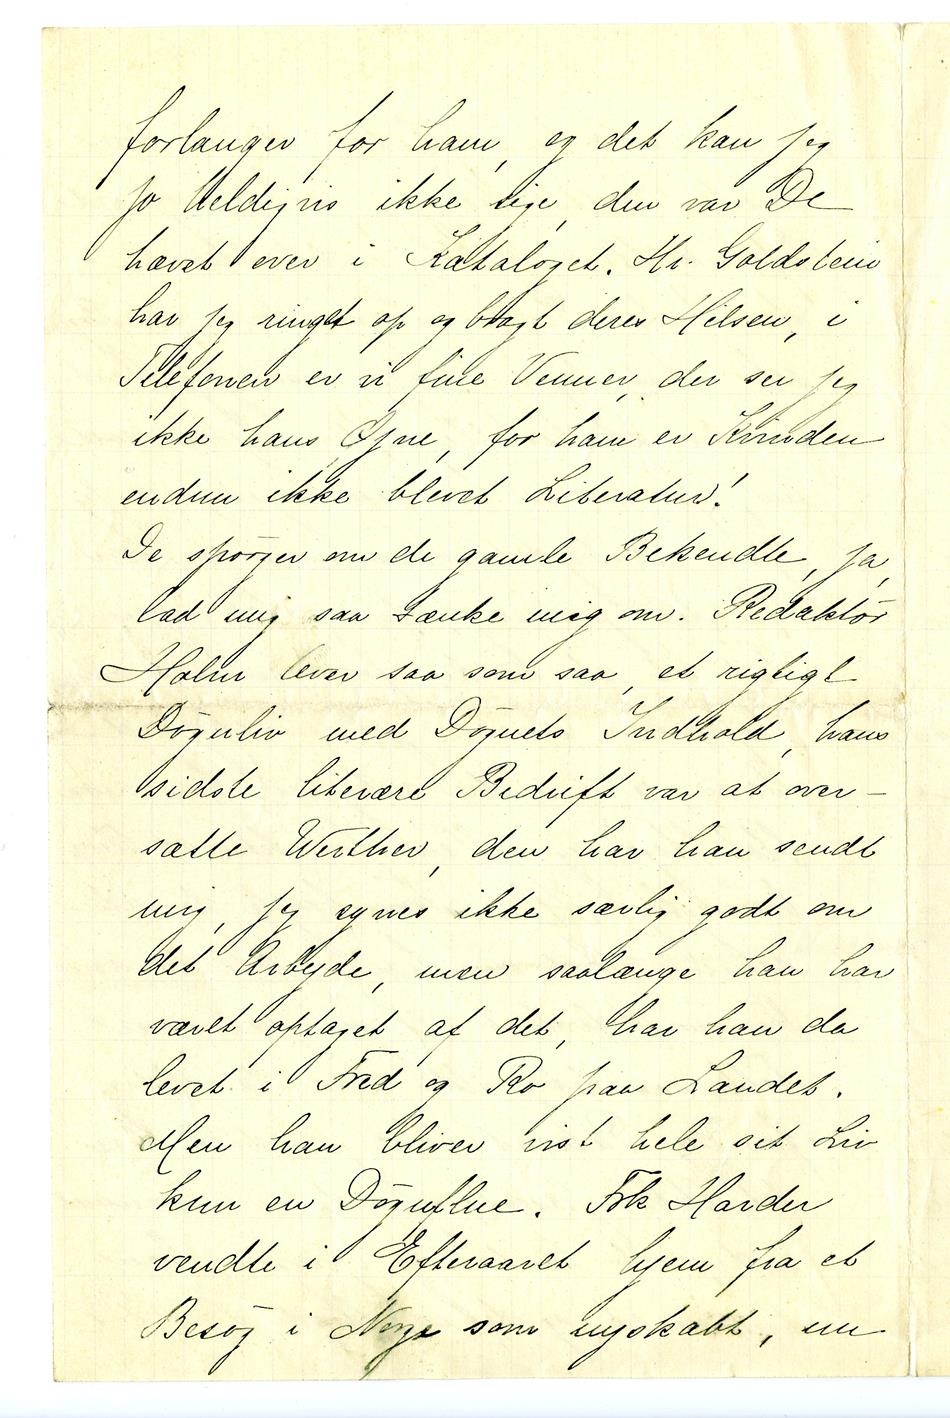 forlanger for ham, og det kan jeg
jo heldigvis ikke sige, den var De
hævet over i Kataloget. Hr. Goldstein
har jeg ringet op og bragt deres Hilsen, i
Telefonen er vi fine Venner, der ser jeg
ikke hans Øjne, for ham er Kvinden
endnu ikke blevet Literatur!
De spørger om de gamle Bekendte, ja,
lad mig saa tænke mig om. Redaktør
Holm lever saa som saa, et rigtigt
Døgnliv med Døgnets Indhold, hans
sidste literære Bedrift var at over-
sætte Werther, den har han sendt
mig, jeg synes ikke særlig godt om
det Arbejde, men saalænge han har
været optaget af det, har han da
levet i Fred og Ro paa Landet.
Men han bliver vist hele sit Liv
kun en Døgnflue. Frk Harder
vendte i Efteraaret hjem fra et
Besøg i Norge som nyskabt, nu